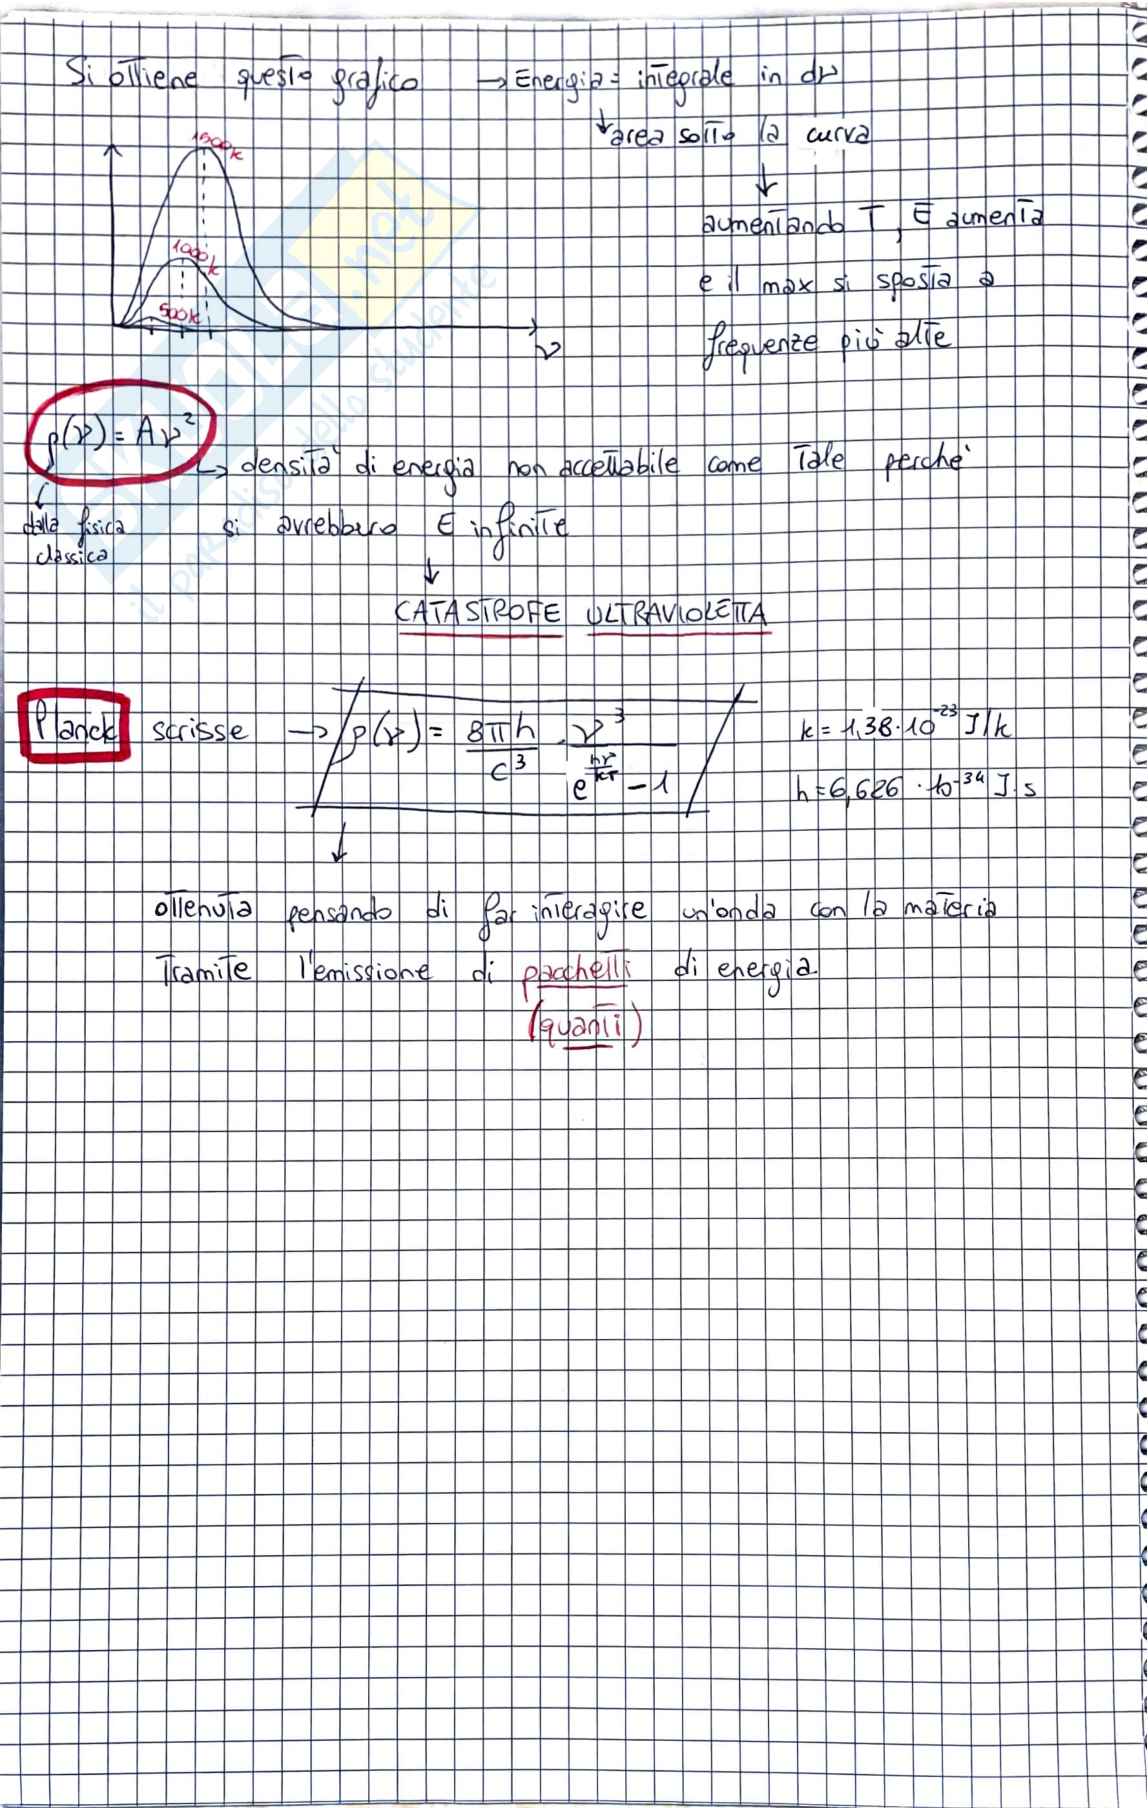 Si ottiene questo grafico → Energia = integrale in dν
↓ area sotto la curva
↓
aumentando T, E aumenta
e il max si sposta a
frequenze più alte
1500k
1000k
500k
ν
ρ(ν) = Aν²
↳ densità di energia non accettabile come tale perché
si avrebbero E infinite
dalla fisica
classica
↓
CATASTROFE ULTRAVIOLETTA
Planck scrisse → ρ(ν) = 8πh/c³ · ν³/(e^(hν/kT) - 1)
k = 1,38·10⁻²³ J/k
h = 6,626 · 10⁻³⁴ J·s
↓
ottenuta pensando di far interagire un'onda con la materia
tramite l'emissione di pacchetti di energia
(quanti)
.net
il paradiso dello studente